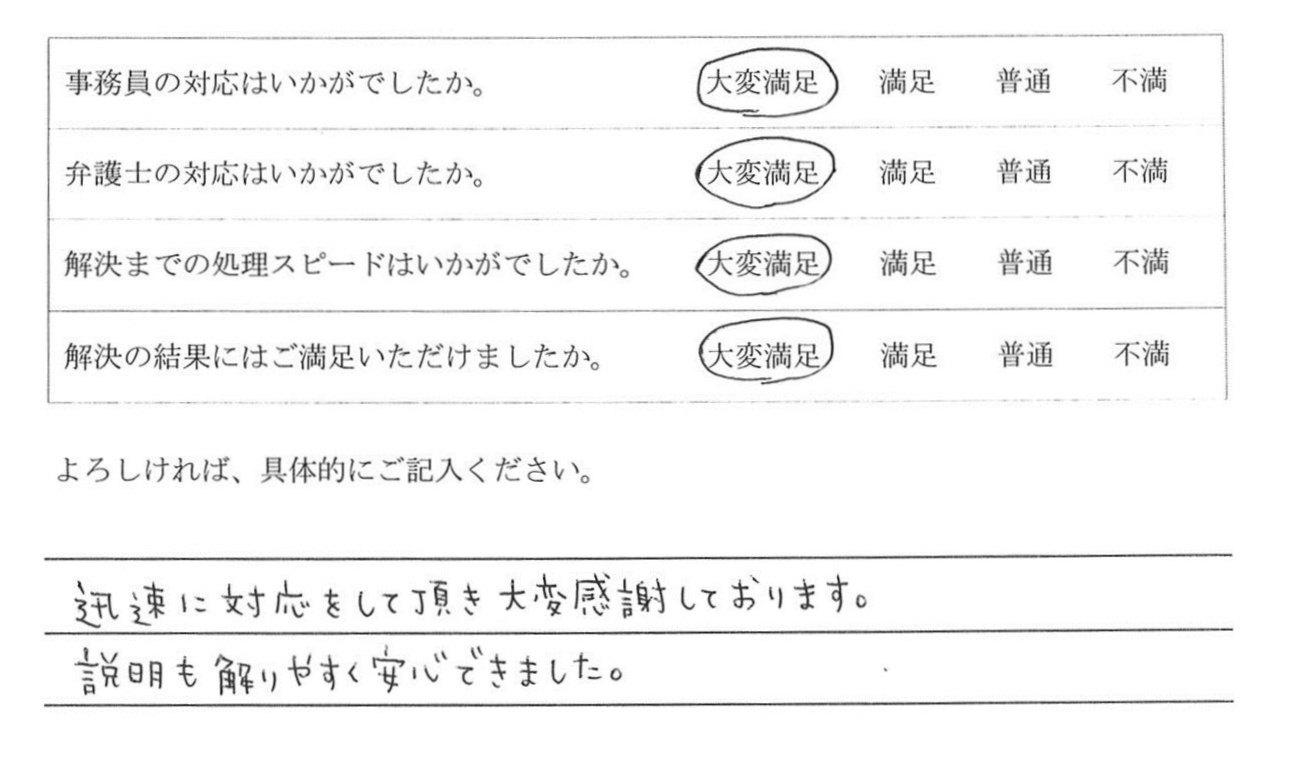 事務員の対応はいかがでしたか。 大変満足 満足 普通 不満
弁護士の対応はいかがでしたか。 大変満足 満足 普通 不満
解決までの処理スピードはいかがでしたか。 大変満足 満足 普通 不満
解決の結果にはご満足いただけましたか。 大変満足 満足 普通 不満
よろしければ、具体的にご記入ください。
迅速に対応をして頂き大変感謝しております。
説明も解りやすく安心できました。